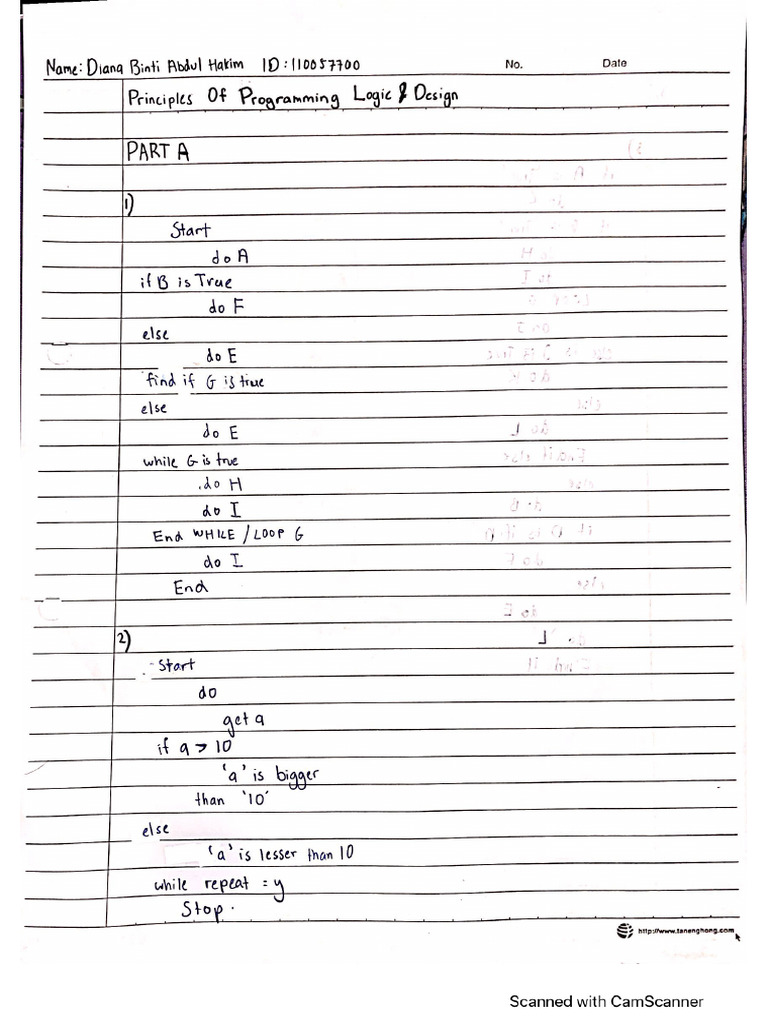 Name: Diana Binti Abdul Hakim ID: 110057700 No. Date
Principles Of Programming Logic & Design
PART A
1)
Start
do A
if B is True
do F
else
do E
find if G is true
else
do E
while G is true
do H
do I
End WHILE / LOOP G
do I
End
2)
Start
do
get a
if a > 10
'a' is bigger
than '10'
else
'a' is lesser than 10
while repeat = y
Stop.
http://www.tanenghong.com
Scanned with CamScanner